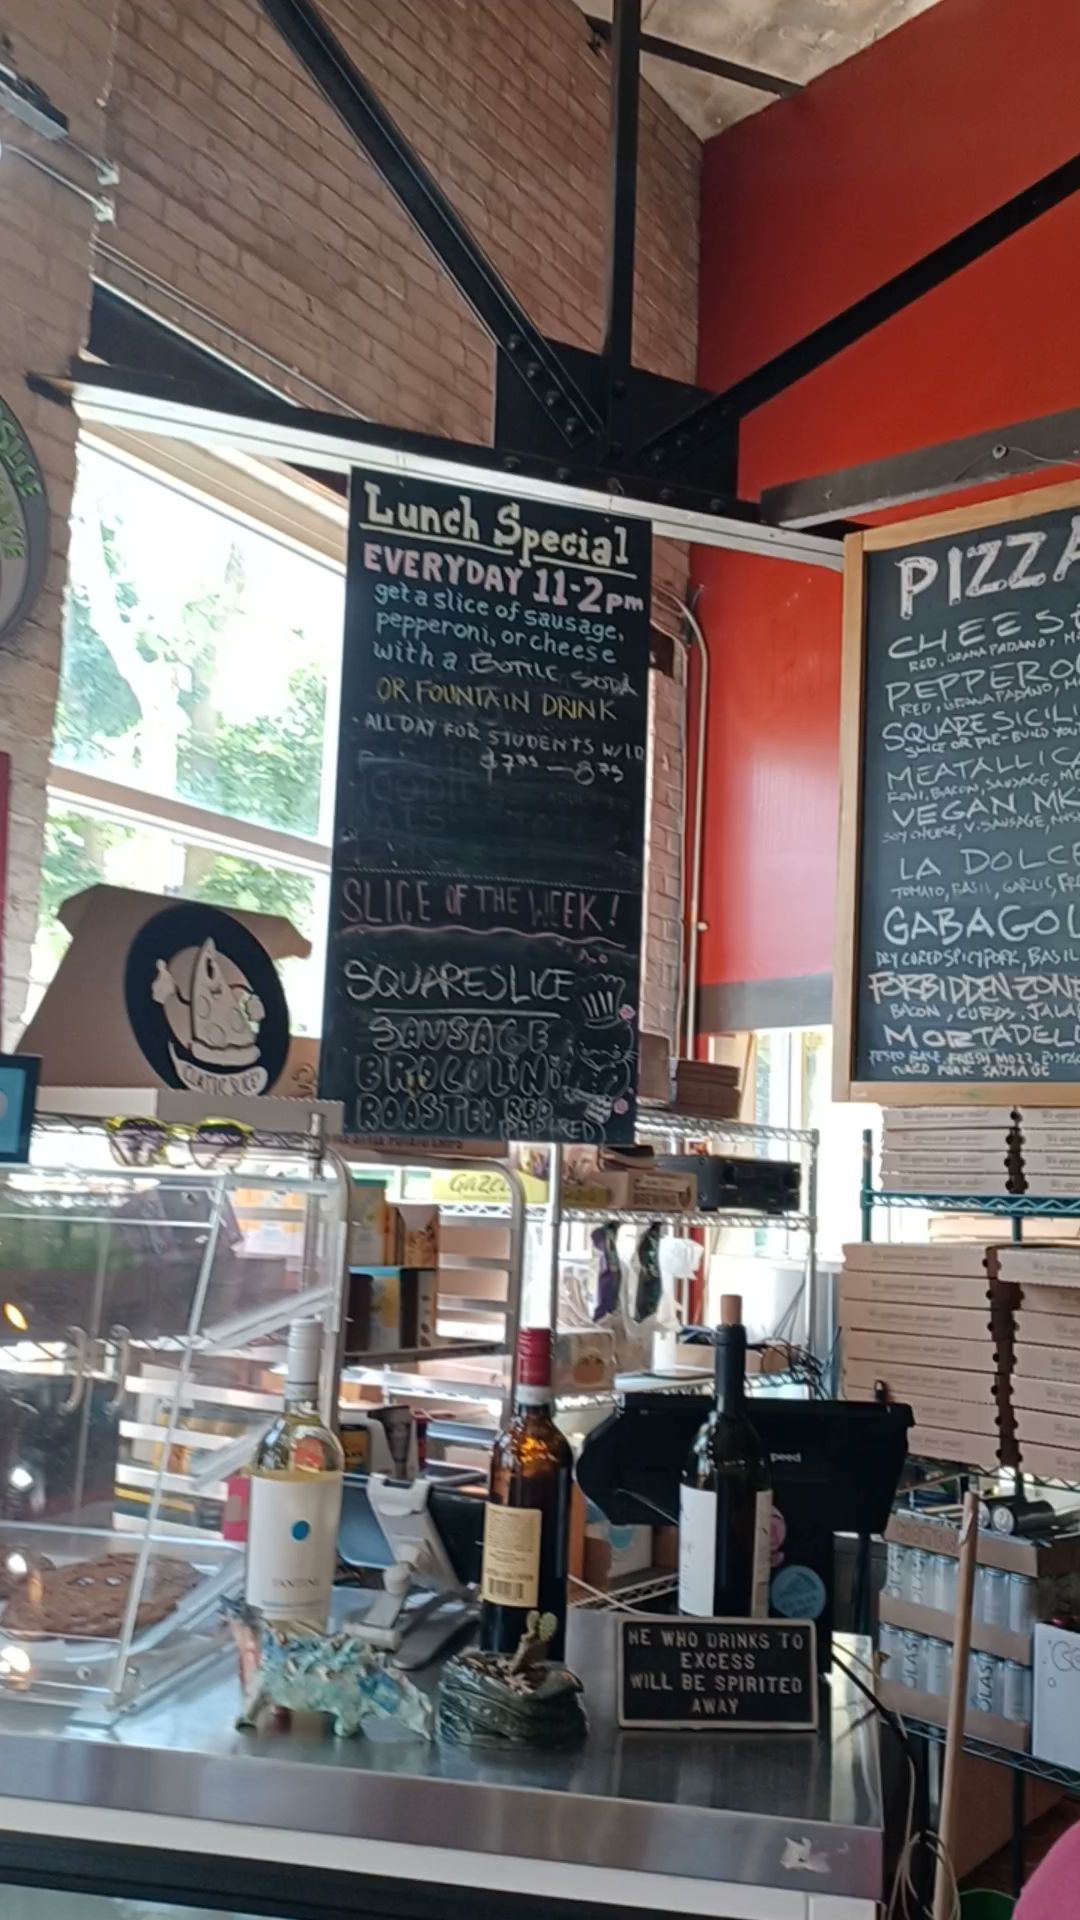 Lunch Special
EVERYDAY 11-2pm
get a slice of sausage,
pepperoni, or cheese
with a BOTTLE SODA
OR FOUNTAIN DRINK
- ALL DAY FOR STUDENTS W/I.D
$7.75 - 8.75
SLICE OF THE WEEK!
SQUARE SLICE
SAUSAGE
BROCOLINI
ROASTED RED
PIZZA
CHEESE
RED, GRANA PADANO,
PEPPERO
RED, GRANA PADANO,
SQUARE SICILI
SLICE OR PRE-BUILD YOU
MEATALLICA
RONI, BACON, SAUSAGE,
VEGAN MK
SOY CHEESE, V. SAUSAGE,
LA DOLCE
TOMATO, BASIL, GARLIC, FRE
GABAGOL
DRY CURED SPICY PORK, BASIL
FORBIDDEN ZONE
BACON, CURDS, JALA
MORTADEL
PESTO BASE, FRESH MOZZ,
CURED PORK SAUSAGE
BREWING
peed
FANTINI
HE WHO DRINKS TO
EXCESS
WILL BE SPIRITED
AWAY